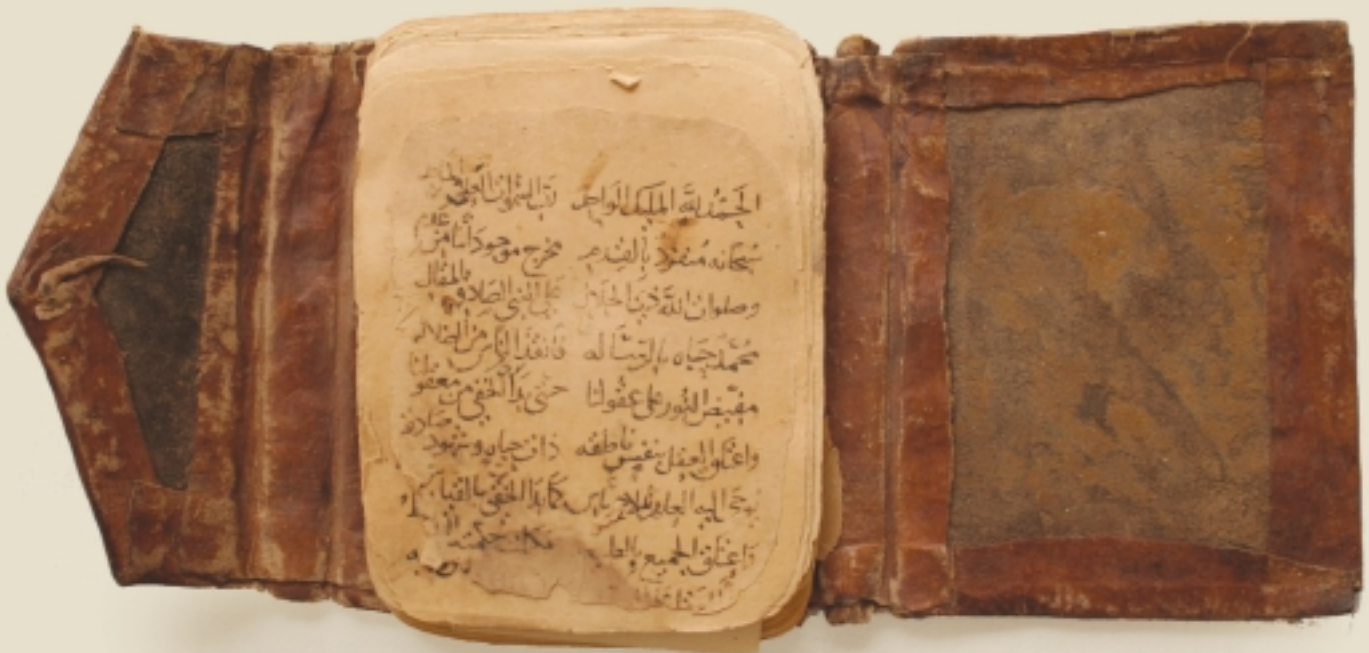 الحَمْدُ لِلَّهِ المَلِيكِ الوَاحِدِ رَبِّ السَّمَوَاتِ العَلِيِّ المَاجِدِ
سُبْحَانَه مُنفَرِد بِالقِدَمِ مخرج موجوداتنا من عدم
وصلوات الله ذي الجلال على النبي الصادق المقال
مُحَمَّد حباه بالرسَاله فانقذ الناس من الضلاله
مفيض النور على عقولنا حتى بدا الخفي من معقولنا
واعتلق العقل بنفس ناطقه ذات حياه وشهود صادقه
اليه العلم كما بدا الخفي بالقياس
واعتلق الجميع